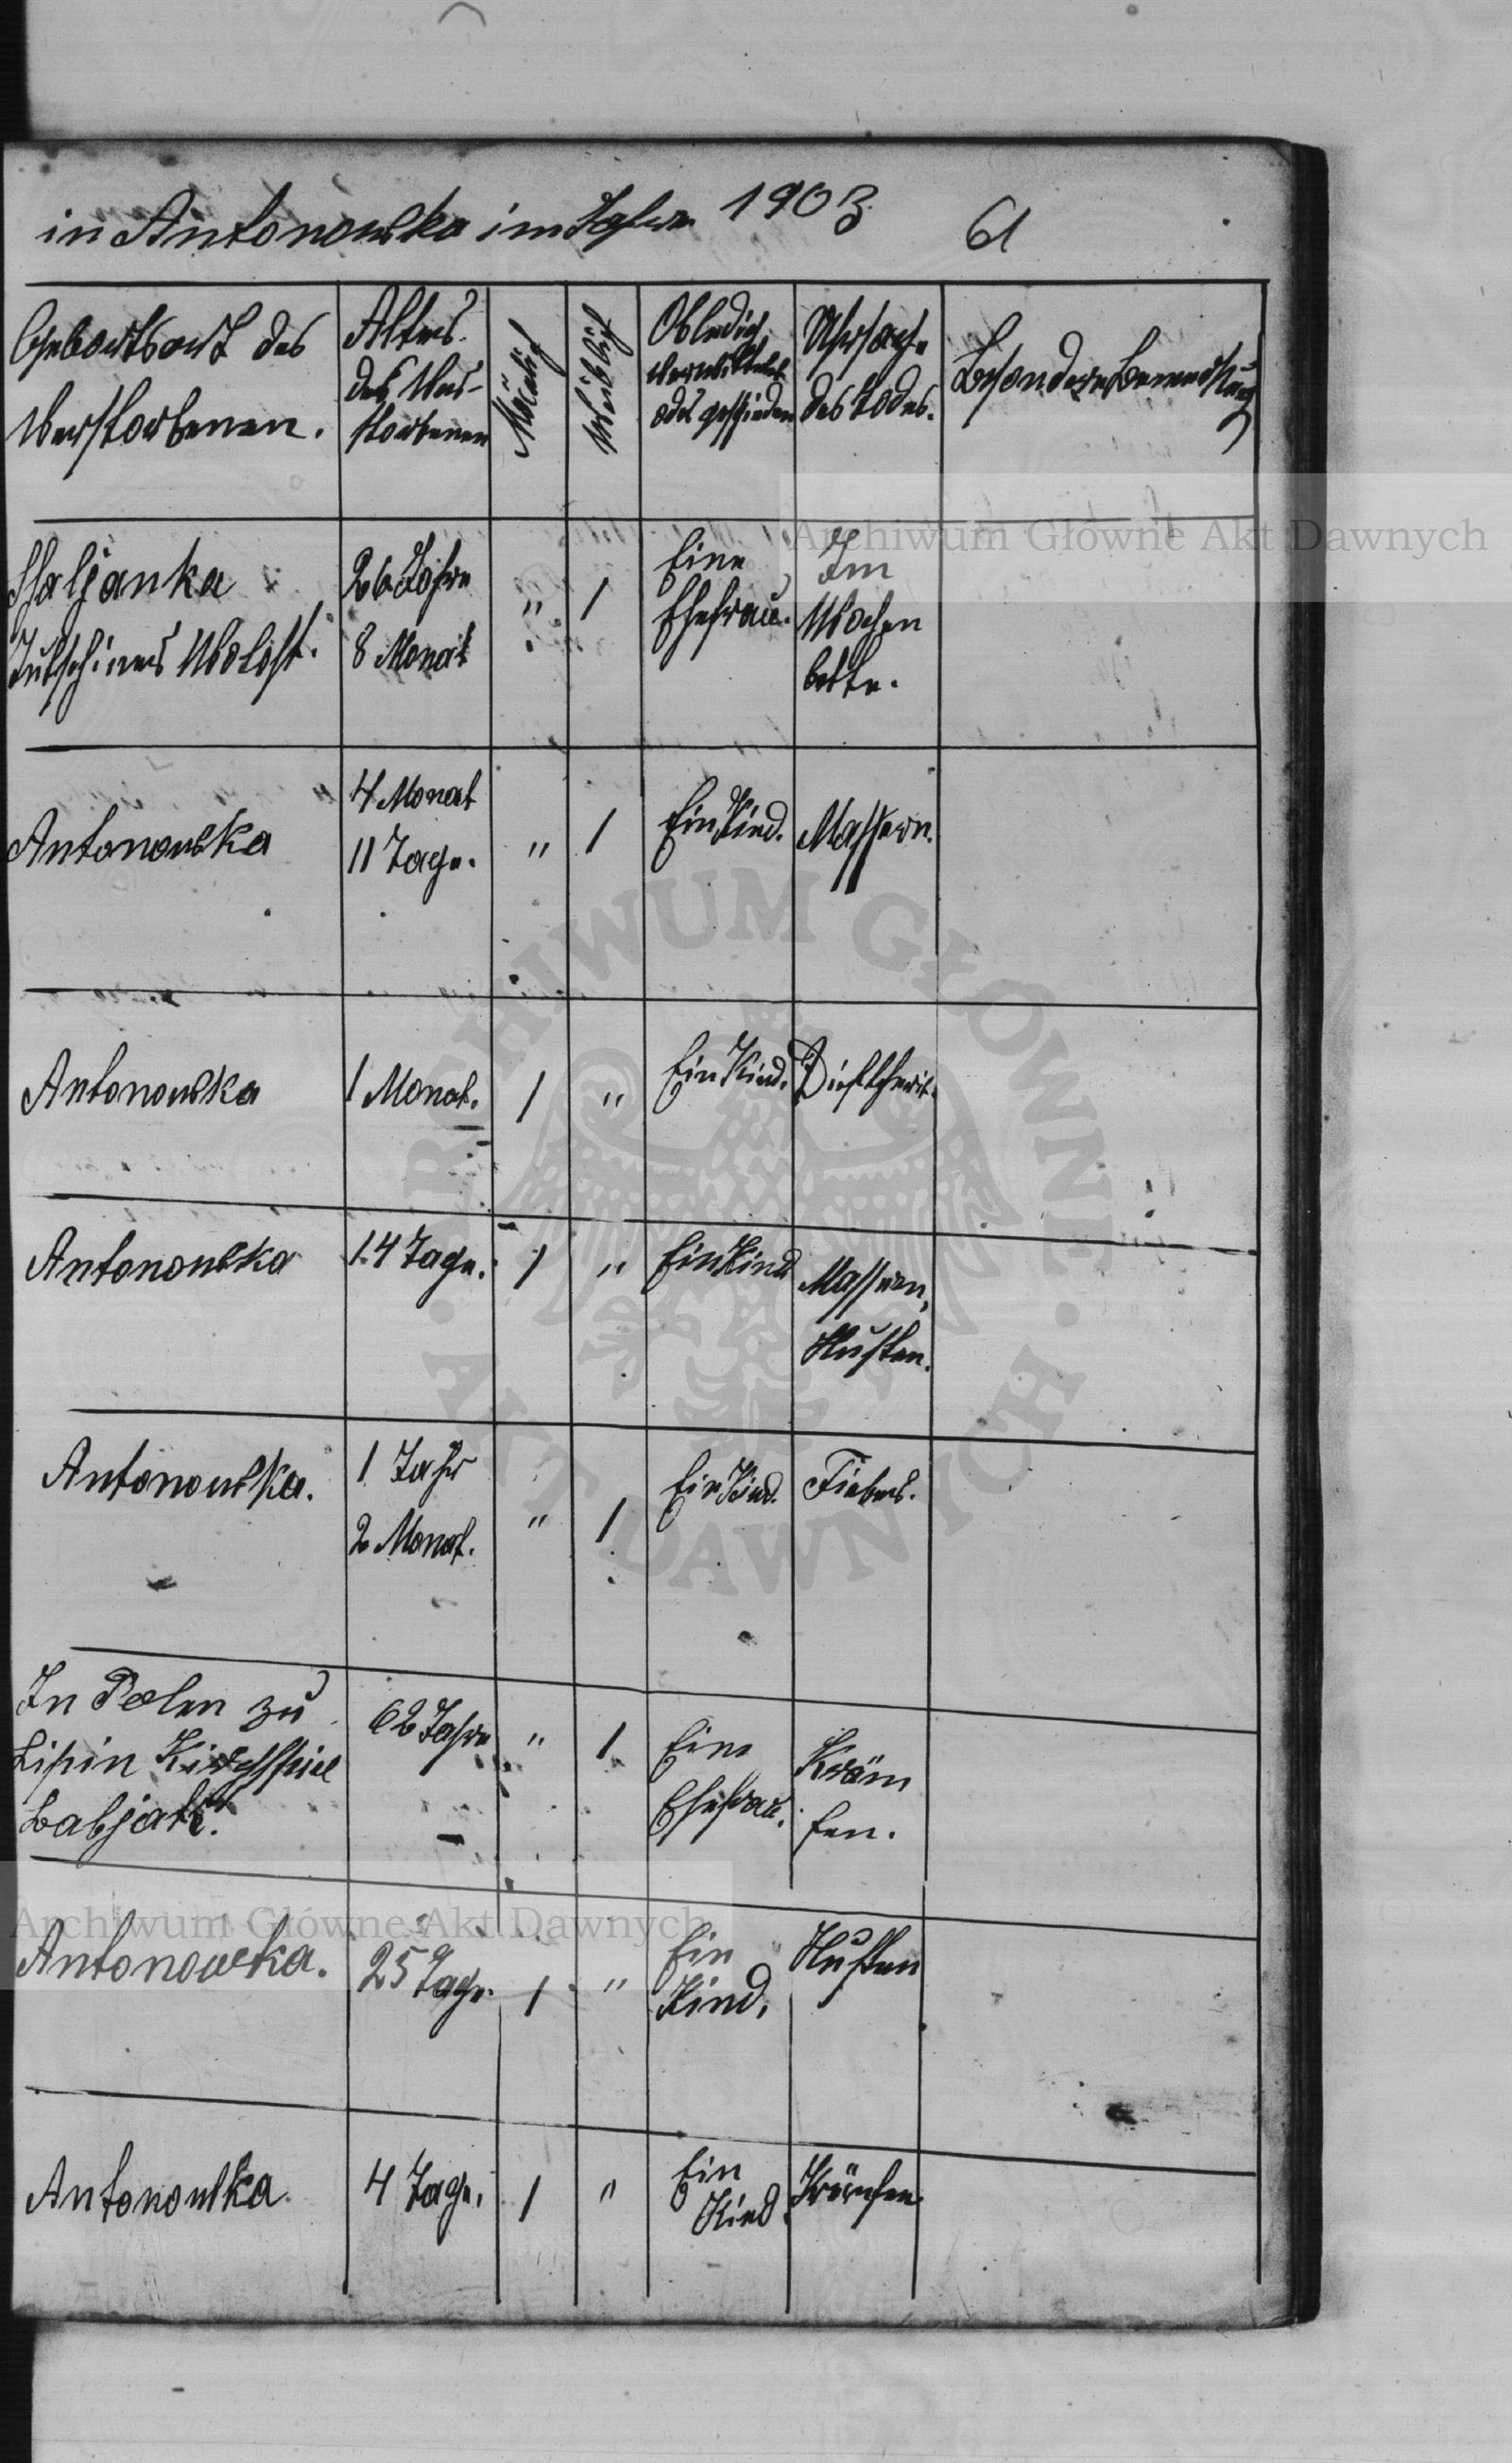 in Antonowka im Jahre 1903
61
Geburtsort des
Verstorbenen.
Alter
des Ver-
storbenen
Mänlich
Weiblich
Ob ledich
verwittwet
oder geschieden
Uhrsache
des Todes.
Besondere Bemerkung
Haljanka
Tutschiner Wolost.
26 Jahre
8 Monat
"
1
Eine
Ehefrau.
Im
Wochen
bette.
Antonowka
4 Monat
11 Tage.
"
1
Ein Kind.
Massern.
Antonowka
1 Monat.
1
"
Ein Kind.
Diefthrit.
Antonowka
14 Tage.
1
"
Ein Kind
Massern,
Husten.
Antonowka.
1 Jahr
2 Monat.
"
1
Ein Kind.
Fieber.
In Polen zu
Lipin Kirchspiel
Babjak.
62 Jahre
"
1
Eine
Ehefrau.
Kräm
fen.
Antonowka.
25 Tage.
1
"
Ein
Kind.
Husten
Antonowka
4 Tage.
1
"
Ein
Kind.
Krämfen.
Archiwum Główne Akt Dawnych
ARCHIWUM GŁÓWNE
· AKT DAWNYCH ·
Archiwum Główne Akt Dawnych